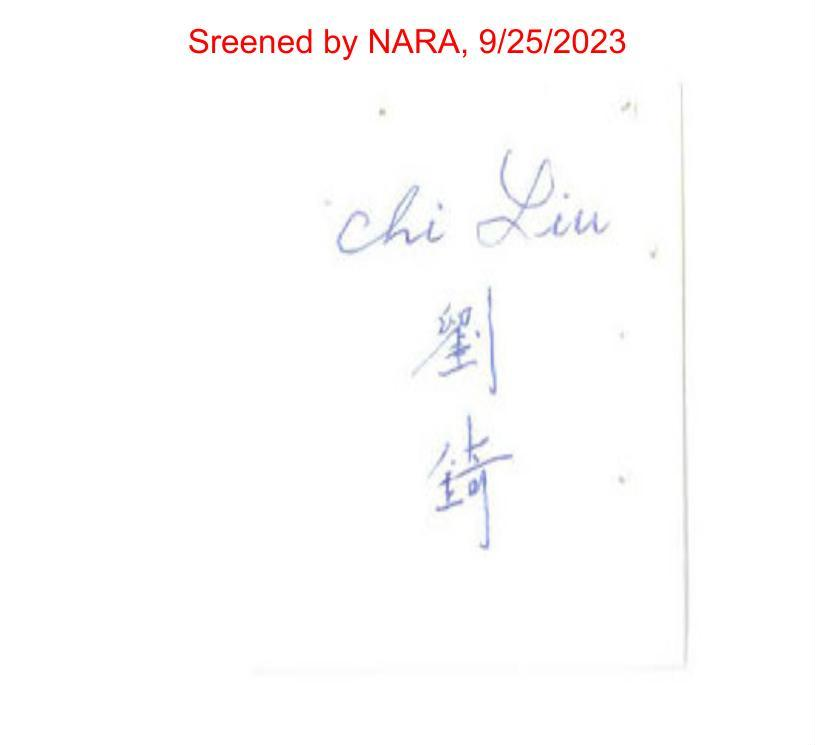 Sreened by NARA, 9/25/2023
Chi Liu
劉
錡